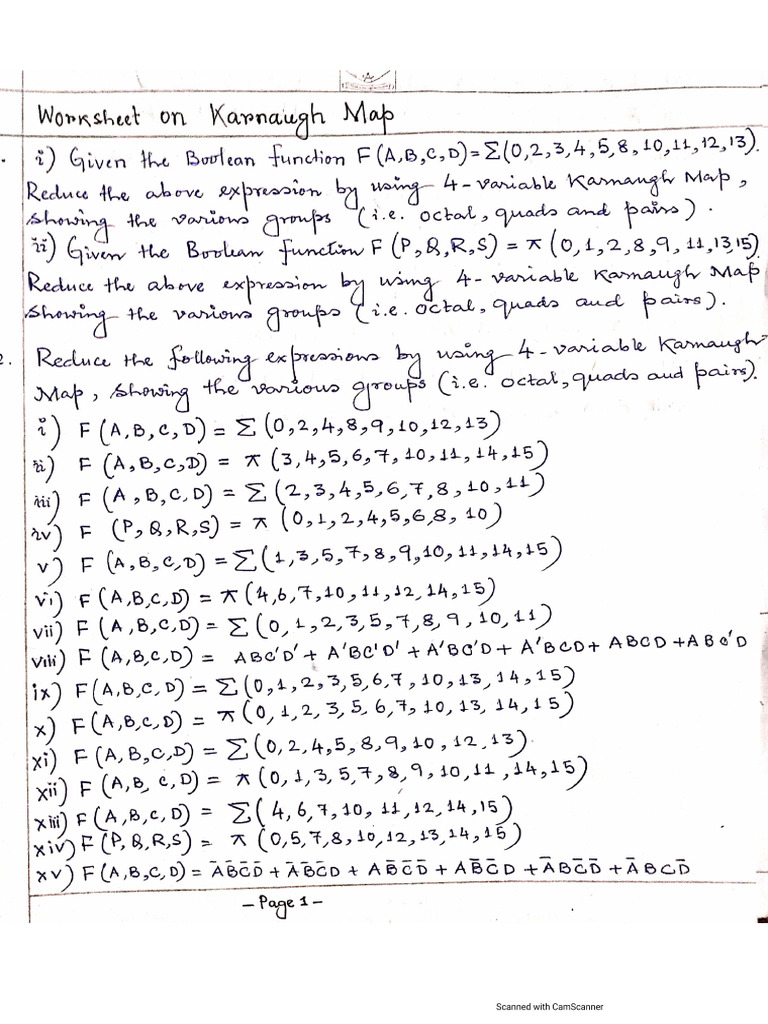 Worksheet on Karnaugh Map
i) Given the Boolean function F(A,B,C,D)=Σ(0,2,3,4,5,8,10,11,12,13).
Reduce the above expression by using 4-variable Karnaugh Map,
showing the various groups (i.e. octal, quads and pairs).
ii) Given the Boolean function F(P,Q,R,S) = π(0,1,2,8,9,11,13,15)
Reduce the above expression by using 4-variable Karnaugh Map
showing the various groups (i.e. octal, quads and pairs).
2. Reduce the following expressions by using 4-variable Karnaugh
Map, showing the various groups (i.e. octal, quads and pairs).
i) F(A,B,C,D) = Σ(0,2,4,8,9,10,12,13)
ii) F(A,B,C,D) = π(3,4,5,6,7,10,11,14,15)
iii) F(A,B,C,D) = Σ(2,3,4,5,6,7,8,10,11)
iv) F (P,Q,R,S) = π(0,1,2,4,5,6,8,10)
v) F (A,B,C,D) = Σ(1,3,5,7,8,9,10,11,14,15)
vi) F(A,B,C,D) = π(4,6,7,10,11,12,14,15)
vii) F(A,B,C,D) = Σ(0,1,2,3,5,7,8,9,10,11)
viii) F(A,B,C,D) = ABC'D' + A'BC'D' + A'BC'D + A'BCD + ABCD + ABC'D
ix) F(A,B,C,D) = Σ(0,1,2,3,5,6,7,10,13,14,15)
x) F(A,B,C,D) = π(0,1,2,3,5,6,7,10,13,14,15)
xi) F(A,B,C,D) = Σ(0,2,4,5,8,9,10,12,13)
xii) F(A,B,C,D) = π(0,1,3,5,7,8,9,10,11,14,15)
xiii) F(A,B,C,D) = Σ(4,6,7,10,11,12,14,15)
xiv) F(P,Q,R,S) = π(0,5,7,8,10,12,13,14,15)
xv) F(A,B,C,D) = A̅B̅C̅D̅ + A̅B̅C̅D + AB̅C̅D̅ + AB̅C̅D + A̅BC̅D̅ + A̅BCD̅
- Page 1 -
Scanned with CamScanner